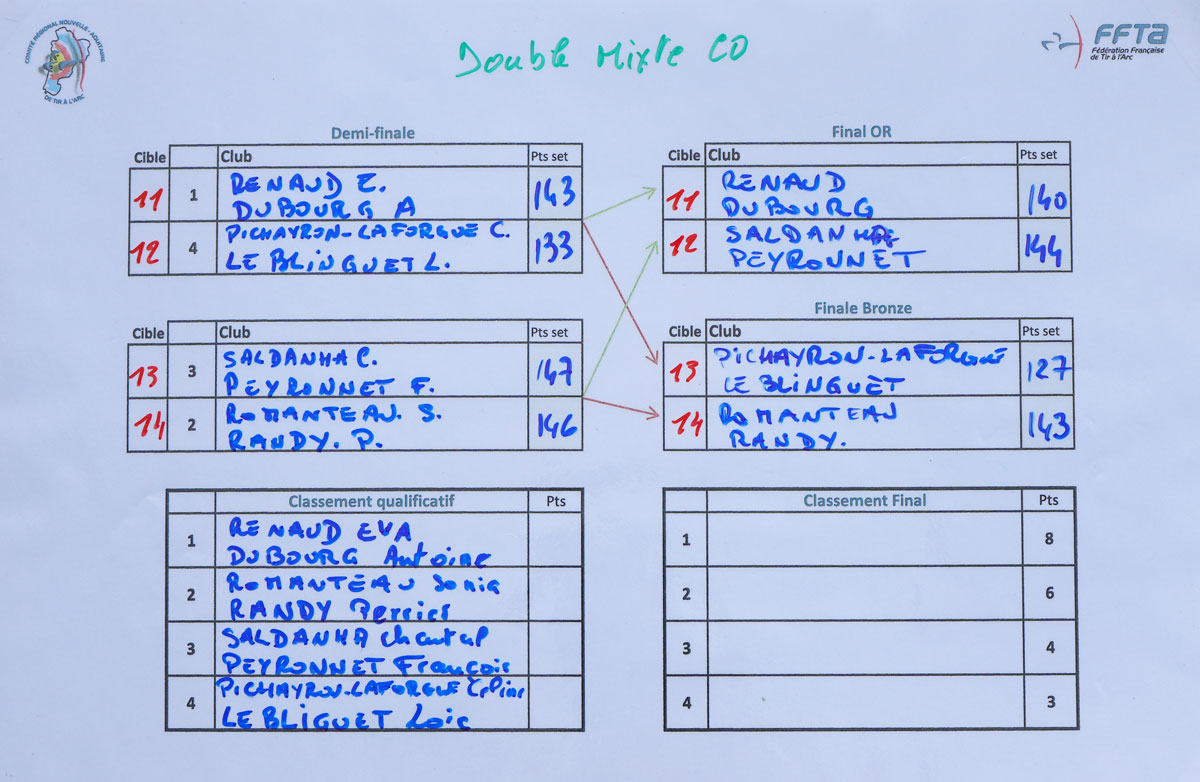 COMITÉ RÉGIONAL NOUVELLE-AQUITAINE
DE TIR À L'ARC
Double Mixte CO
FFTA
Fédération Française
de Tir à l'Arc
Demi-finale
Cible Club Pts set
11 1 RENAUD E. 143
DUBOURG A
12 4 PICHAYRON-LAFORGUE C. 133
LE BLINGUET L.
Final OR
Cible Club Pts set
11 RENAUD 140
DUBOURG
12 SALDANHA 144
PEYRONNET
Cible Club Pts set
13 3 SALDANHA C. 147
PEYRONNET F.
14 2 ROMANTEAU. S. 146
RANDY. P.
Finale Bronze
Cible Club Pts set
13 PICHAYRON-LAFORGUE 127
LE BLINGUET
14 ROMANTEAU 143
RANDY.
Classement qualificatif Pts
1 RENAUD EVA
DUBOURG Antoine
2 ROMANTEAU Sonia
RANDY Perrier
3 SALDANHA Chantal
PEYRONNET François
4 PICHAYRON-LAFORGUE
LE BLIGUET Loic
Classement Final Pts
1 8
2 6
3 4
4 3